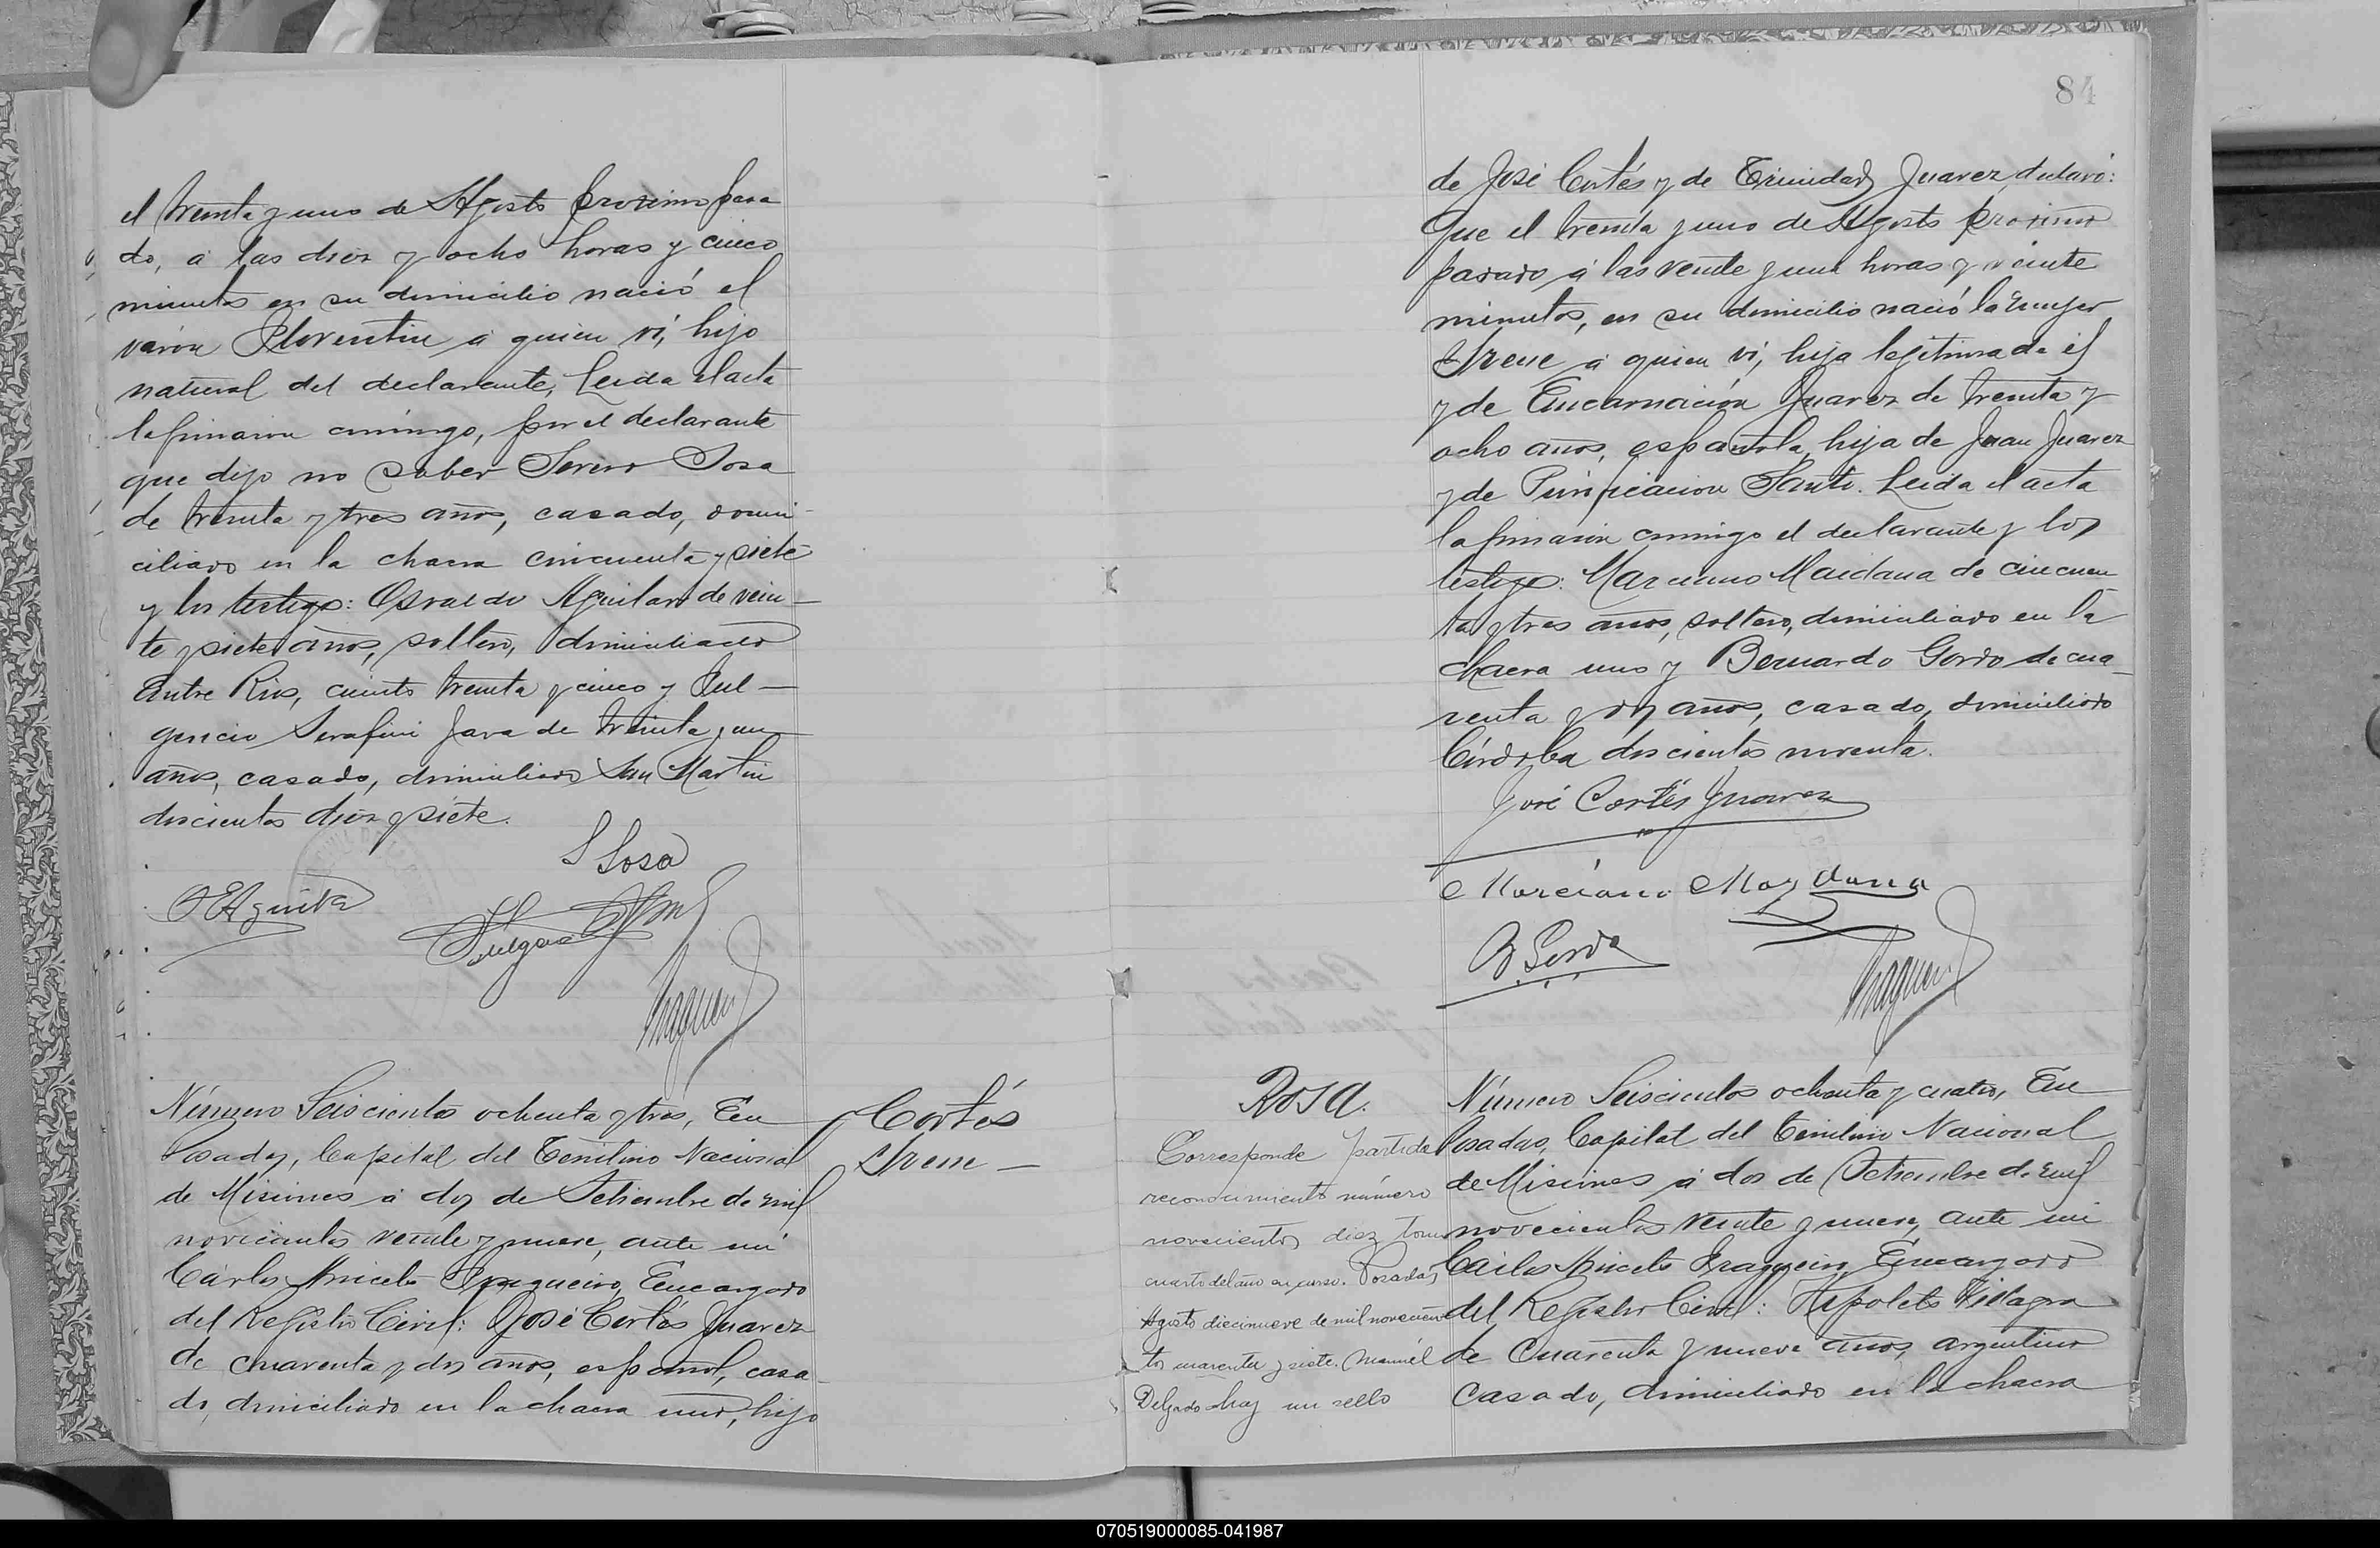 el treinta y uno de Agosto proximo pasa
do, a las diez y ocho horas y cinco
minutos en su domicilio nació el
varón Florentin a quien ví, hijo
natural del declarante, Leida el acta
la firmaron conmigo, por el declarante
que dijo no saber Severo Sosa
de treinta y tres años, casado, domi-
ciliado en la chacra cincuenta y siete
y los testigos: Osvaldo Aguilar de vein-
te y siete años, soltero, domiciliado
Entre Rios, ciento treinta y cinco y Ful-
gencio Serafin Java de treinta y un
años, casado, domiciliado San Martin
doscientos diez y siete.
S Sosa
Número Seiscientos ochenta y tres, En
Posadas, Capital del Territorio Nacional
de Misiones a dos de Setiembre de mil
novecientos veinte y nueve, ante mi
Cárlos Aniceto Fragueiro, Encargado
del Registro Civil: José Cortés Juarez
de cuarenta y dos años, español, casa-
do, domiciliado en la chacra uno, hijo
Cortés
Irene —
84
de José Cortés y de Trinidad Juarez, declaró:
Que el treinta y uno de Agosto proximo
pasado á las veinte y una horas y veinte
minutos, en su domicilio nació la mujer
Irene a quien ví, hija legitima de él
y de Encarnación Juarez de treinta y
ocho años, española, hija de Juan Juarez
y de Purificacion Santi. Leida el acta
la firmaron conmigo el declarante y los
testigos: Marciano Maidana de cincuen
ta y tres años, soltero, domiciliado en la
chacra uno y Bernardo Gordo de cua-
renta y dos años, casado, domiciliado
Córdoba doscientos noventa.
José Cortés Juarez
Marciano Maydana
Rosa.
Corresponde partida
reconocimiento número
novecientos diez tomo
cuarto del año en curso. Posadas,
Agosto diecinueve de mil novecien
tos cuarenta y siete. Manuel
Delgado hay un sello
Número Seiscientos ochenta y cuatro, En
Posadas, Capital del Territorio Nacional
de Misiones á dos de Setiembre de mil
novecientos veinte y nueve, ante mi
Cárlos Aniceto Fragueiro, Encargado
del Registro Civil: Hipolito Villagra
de cuarenta y nueve años, argentino
casado, domiciliado en la chacra
070519000085-041987